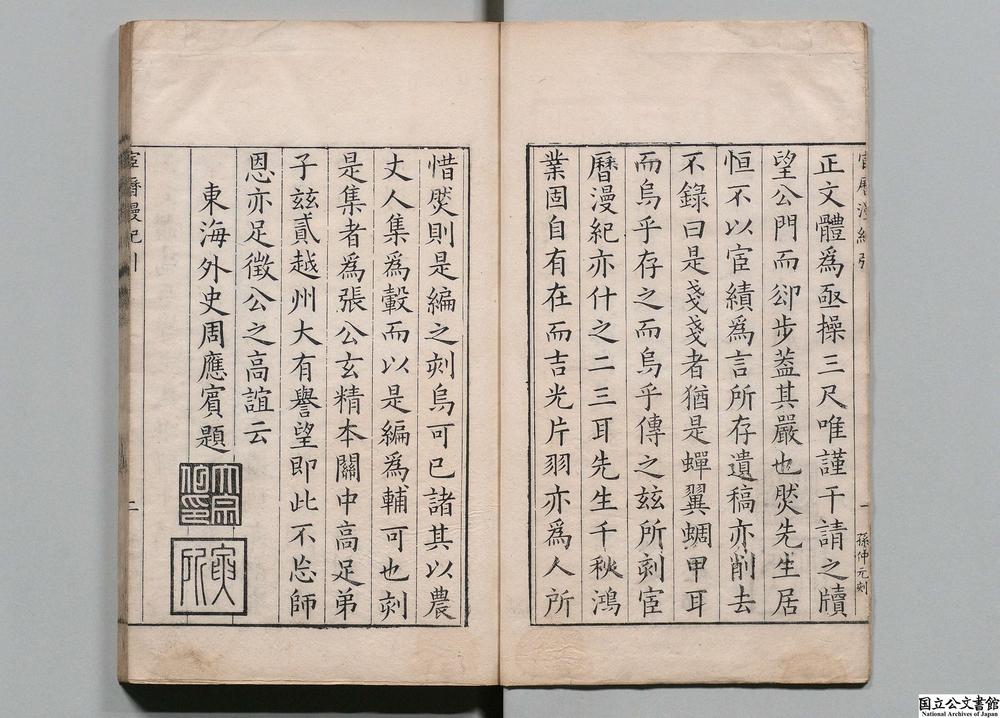 正文體為亟操三尺唯謹干請之牘
望公門而卻步葢其嚴也焂先生居
恒不以宦績為言所存遺稿亦削去
不錄曰是戔戔者猶是蟬翼蜩甲耳
而烏乎存之而烏乎傳之玆所刻宦
曆漫紀亦什之二三耳先生千秋鴻
業固自有在而吉光片羽亦為人所
一
孫仲元刻
惜焂則是編之刻烏可已諸其以農
丈人集為轂而以是編為輔可也刻
是集者為張公玄精本關中高足弟
子玆貳越州大有譽望即此不忘師
恩亦足徵公之高誼云
東海外史周應賓題
宦曆漫紀引
二
国立公文書館
National Archives of Japan